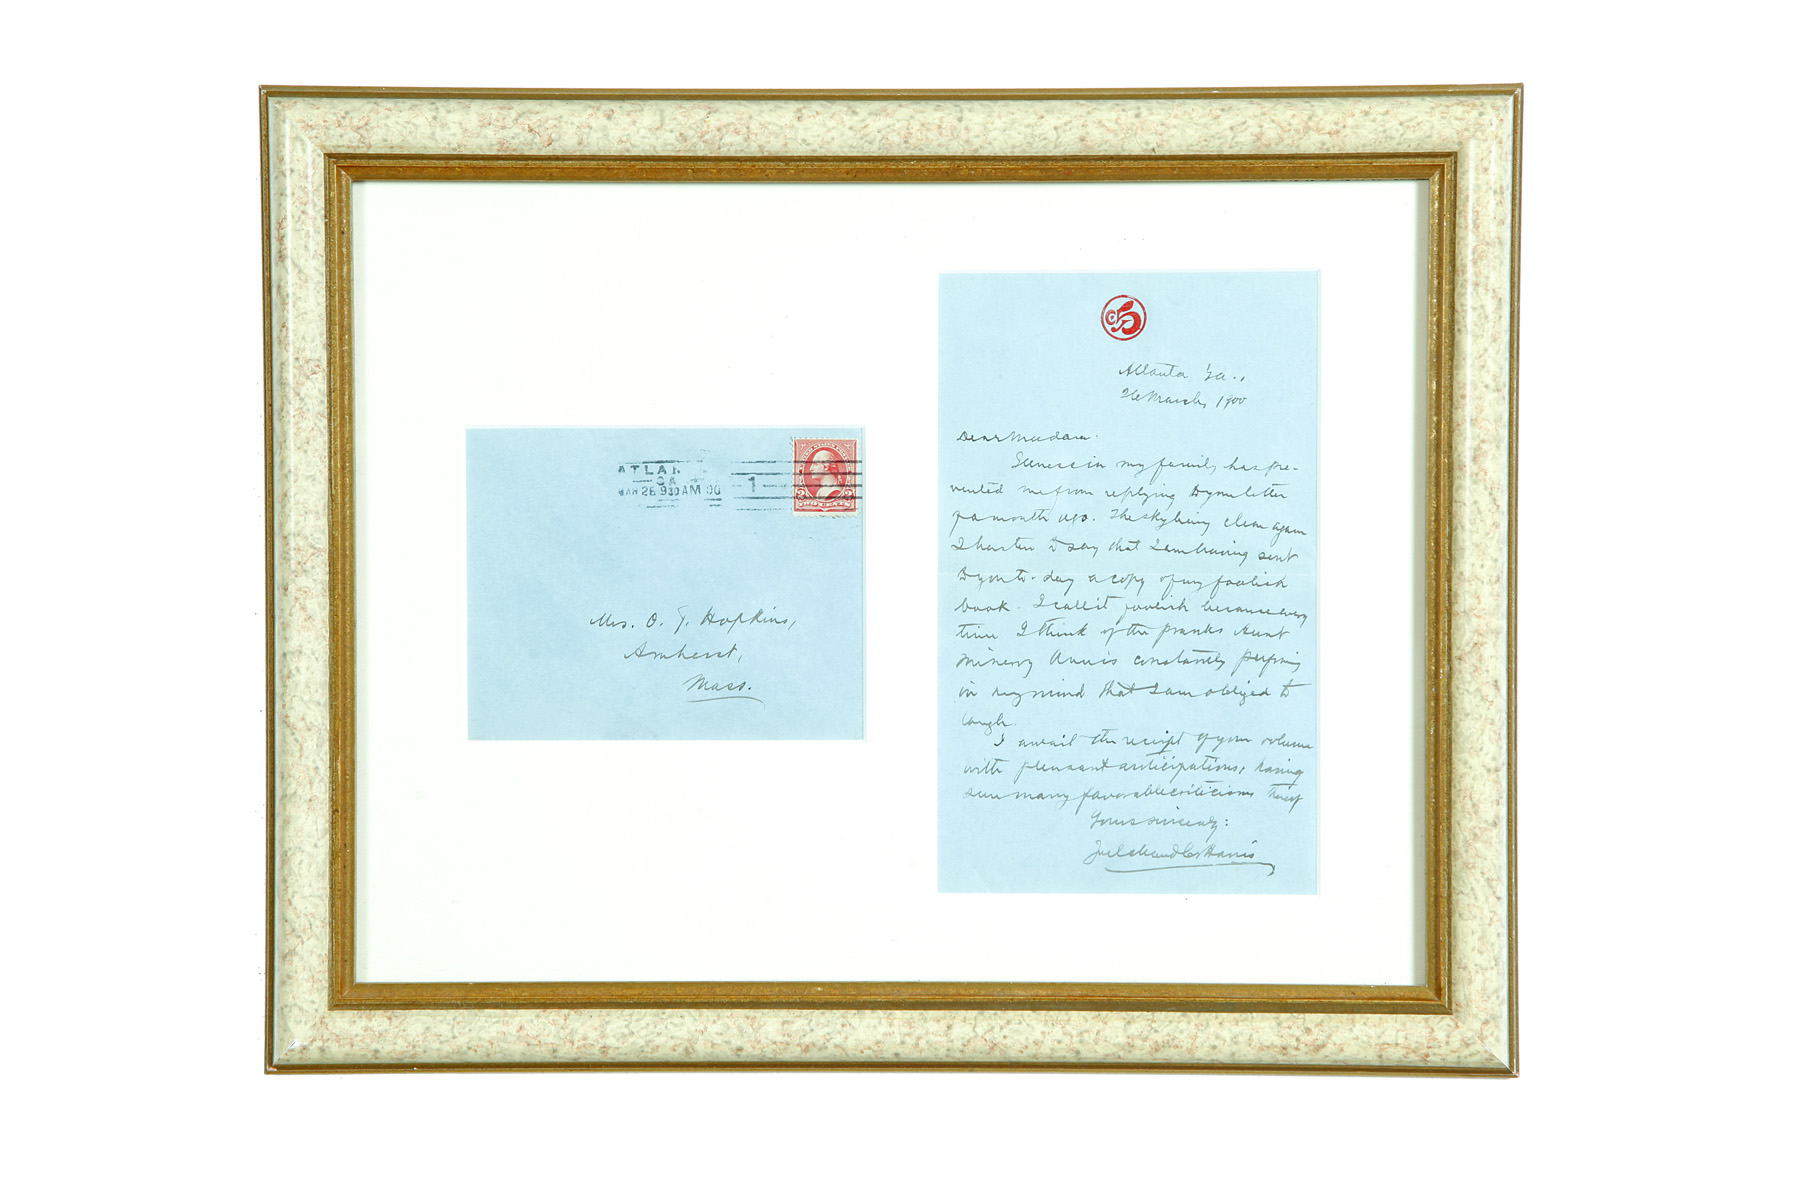 ATLAN
GA
MAR 26 930 AM 00
1
2 2
TWO CENTS
Mrs. O. T. Hopkins,
Amherst,
Mass.
Atlanta Ga.,
26 March, 1900
Dear Madam:
Illness in my family has pre-
vented me from replying to your letter
of a month ago. The sky being clear again
I hasten to say that I am having sent
to you to-day a copy of my foolish
book. I call it foolish because every
time I think of the pranks Aunt
Minervy Ann is constantly performing
in my mind that I am obliged to
laugh.
I await the receipt of your volume
with pleasant anticipations, having
seen many favorable criticisms thereof
Yours sincerely:
Joel Chandler Harris